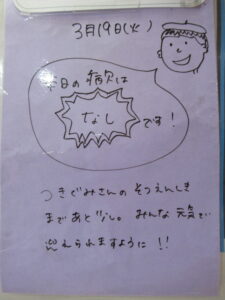 3月19日(火)
本日の病欠は
なし
です!
つきぐみさんのそつえんしき
まであと
みんな元気で
迎えられますように!!